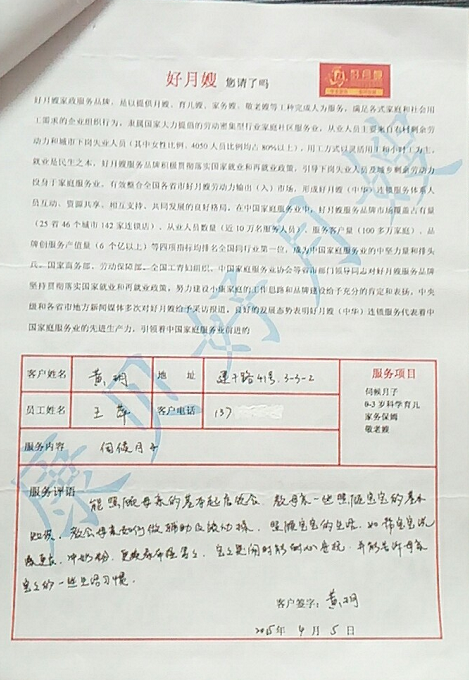 好月嫂 您请了吗
好月嫂
好月嫂家政服务品牌，是以提供月嫂、育儿嫂、家务嫂、敬老嫂等工种完成人为服务，满足各式家庭和社会用
工需求的企业组织行为，隶属国家大力提倡的劳动密集型行业家庭社区服务业，从业人员主要来自农村剩余劳
动力和城市下岗失业人员（其中女性比例、4050 人员比例均占 80%以上），用工方式以灵活用工和小时工为主，
就业是民生之本，好月嫂服务品牌积极贯彻落实国家就业和再就业政策，引导下岗失业人员及城乡剩余劳动力
投身于家庭服务业，有效整合全国各省市好月嫂劳动力输出（入）市场，形成好月嫂（中华）连锁服务体系人
员互动、资源共享、相互支持、共同发展的良好格局，在中国家庭服务业中，好月嫂服务品牌市场覆盖占有量
（25 省 46 个城市 142 家连锁店）、从业人员数量（近 10 万名服务人员）、服务客户量（100 多万家庭）、品
牌创服务产值量（6 个亿以上）等四项指标均排名全国同行业第一位，成为中国家庭服务业的中坚力量和排头
兵。国家商务部、劳动保障部、全国工青妇组织、中国家庭服务业协会等省市部门领导同志对好月嫂服务品牌
坚持贯彻落实国家就业和再就业政策，努力建设小康家庭的工作思路和品牌建设给予充分的肯定和表扬，中央
级和各省市地方新闻媒体多次对好月嫂给予采访报道，良好的发展态势表明好月嫂（中华）连锁服务代表着中
国家庭服务业的先进生产力，引领着中国家庭服务业前进的
康贝好月嫂
客户姓名 黄玥 地 址 41号.3-3-2 服务项目
伺候月子
0-3 岁科学育儿
家务保姆
敬老嫂
员工姓名 王 客户电话 137
服务内容 伺候月子
服务评语
能照顾母亲的基本起居饮食，教母亲一些照顾宝宝的基本
知识，教会母亲如何做辅助 运动操，照顾宝宝的生活，如给宝宝洗
澡 ，冲奶粉，
宝宝的一些生活习惯．
客户签字：黄玥
2015年 4 月 5 日